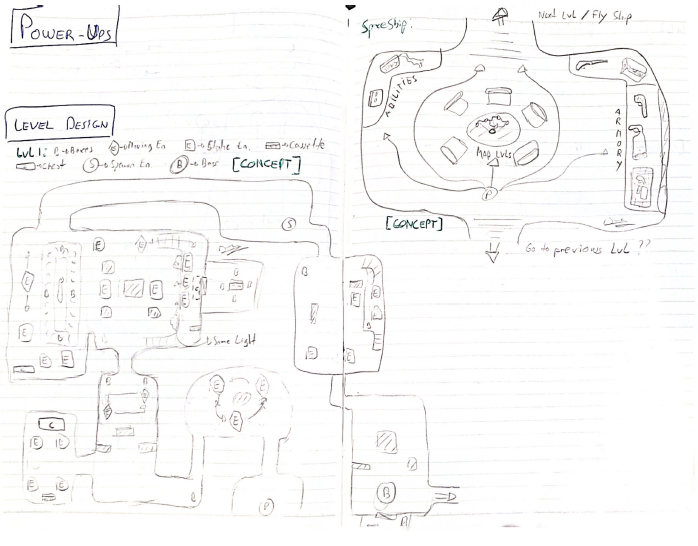 POWER-UPS
LEVEL DESIGN
Lvl 1: B→Boxes E→Moving En. E→Static En. →Cassette
→Chest S→Spawn En. B→Boss [CONCEPT]
S
B
E
E
B
B
E
E
E
E
E
E
E
Some Light
E
E
E
B
E
E
E
E
C
E
E
E
E
B
P
B
1 Space Ship:
Next Lvl / Fly Ship
ABILITIES
ARMORY
MAP LVLS
P
[CONCEPT]
Go to previous Lvl ??